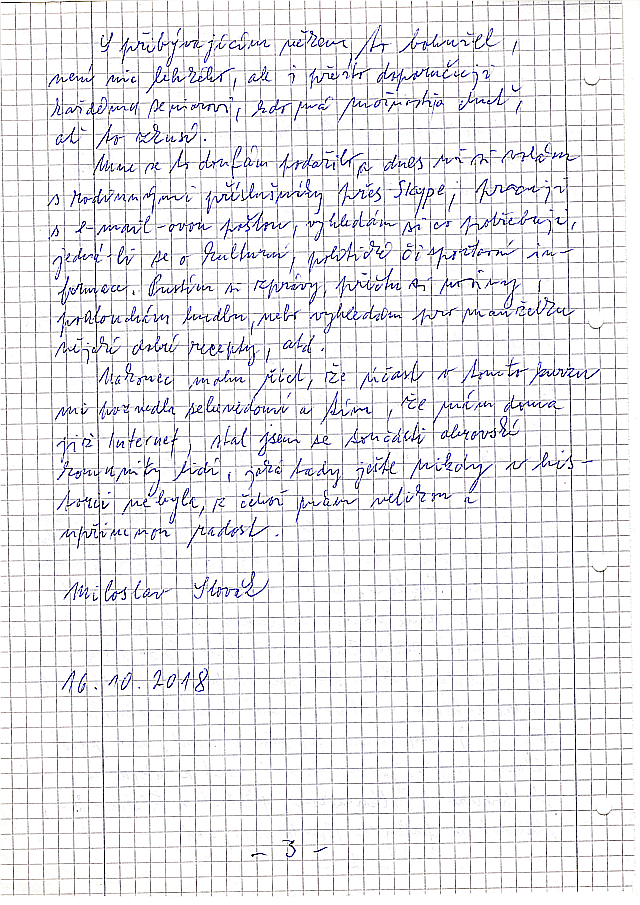 S přibývajícím věkem to bohužel,
není nic lehkého, ale i přesto doporučuji
každému seniorovi, kdo má možnost a chuť,
ať to zkusí.
Mne se to doufám podařilo a dnes už si volám
s rodinnými příslušníky přes Skype, pracuji
s e-mail-ovou poštou, vyhledám si co potřebuji,
jedná-li se o kulturní, politické či sportovní in-
formace. Pustím si zprávy, přečtu si noviny,
poslouchám hudbu, nebo vyhledám pro manželku
nějaké dobré recepty, atd.
Nakonec mohu říct, že účast v tomto kurzu
mi pozvedla sebevědomí a tím, že mám doma
již Internet, stal jsem se součástí obrovské
komunity lidí, jaká tady ješte nikdy v his-
torii nebyla, z čehož mám velikou a
upřímnou radost.
Miloslav
16.10.2018
- 3 -